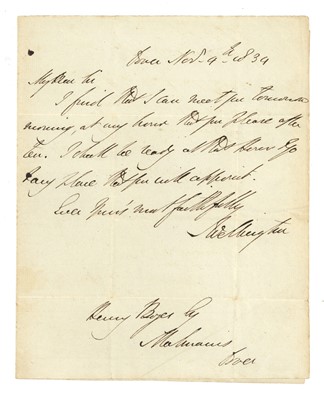 Dover Nov 9th 1839
My Dear Sir
I find that I can meet you tomorrow
morning at any hour that you please after
Ten. I shall be ready at that Hour to go
to any place that you will appoint.
Ever Yours most faithfully
Wellington
Henry Esq
Dover